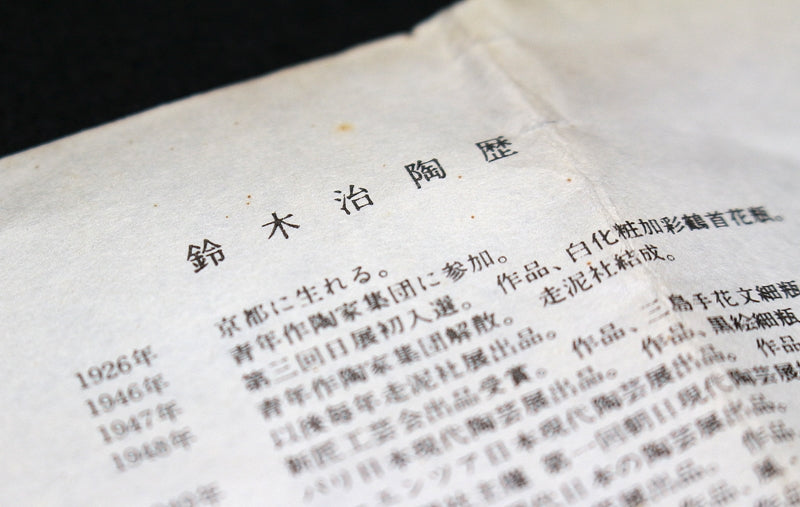 鈴木治陶歴
1926年 京都に生れる。
1946年 青年作陶家集団に参加。
1947年 第三回日展初入選。 作品、白化粧加彩鶴首花瓶。
1948年 青年作陶家集団解散。 走泥社結成。
以後毎年走泥社展出品。
新匠工芸会出品受賞。 作品、三島手花文細瓶
パリ日本現代陶芸展出品。 作品、黒絵細瓶
日本現代陶芸展出品。 作品
第一回朝日現代陶芸展
日本の陶芸展出品。
出品。 作品